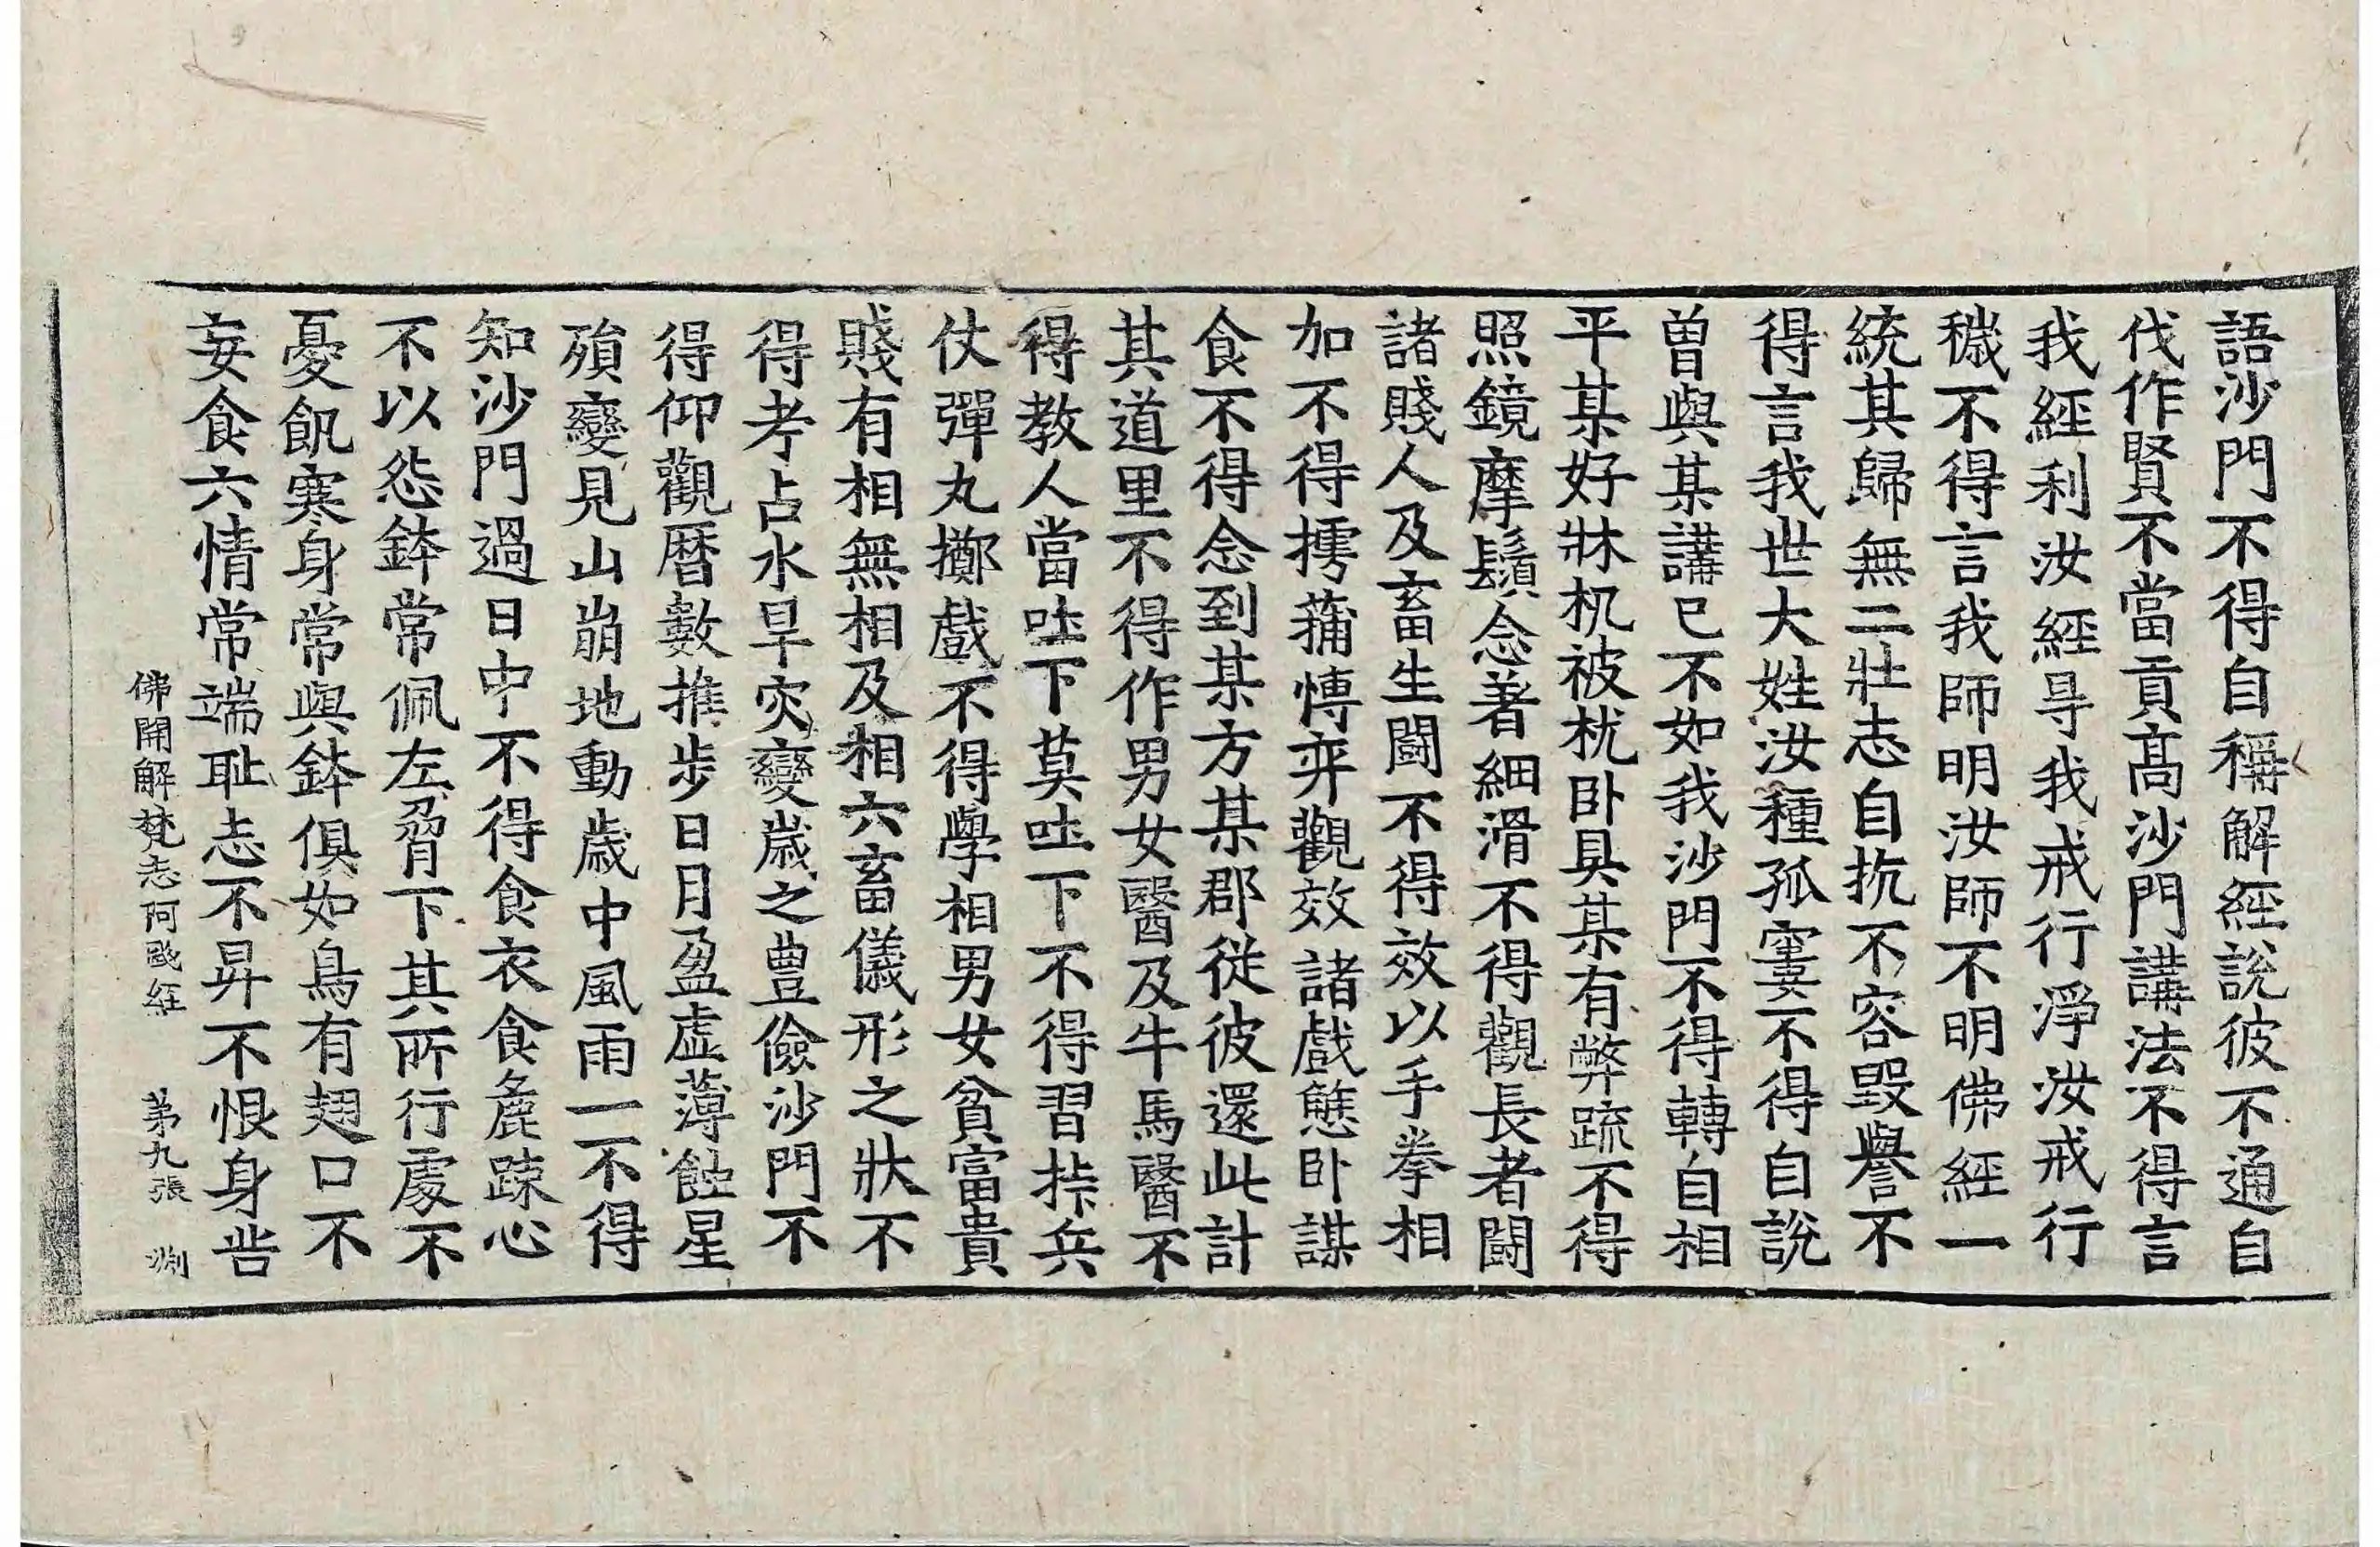 語沙門不得自稱解經說彼不通自
伐作賢不當貢高沙門講法不得言
我經利汝經㝵我戒行淨汝戒行
穢不得言我師明汝師不明佛經一
統其歸無二壯志自抗不容毀譽不
得言我世大姓汝種孤寠不得自說
曽與某講已不如我沙門不得轉自相
平某好牀机被枕卧具某有弊䟽不得
照鏡摩鬚念著細滑不得觀長者鬪
諸賤人及畜生鬪不得效以手拳相
加不得摴蒱愽弈觀效諸戲態卧謀
食不得念到某方某郡從彼還此計
其道里不得作男女醫及牛馬醫不
得教人當吐下莫吐下不得習㧗兵
仗彈丸擲戲不得學相男女貧富貴
賤有相無相及相六畜儀形之狀不
得考占水旱灾變嵗之豊儉沙門不
得仰觀曆數推步日月盈虛薄蝕星
殞變見山崩地動嵗中風雨一不得
知沙門過日中不得食衣食麁踈心
不以怨鉢常佩左脅下其所行處不
憂飢寒身常與鉢俱如鳥有翅口不
妄食六情常端耻志不昇不恨身呰
佛開解梵志阿䬫經 苐九張 渊